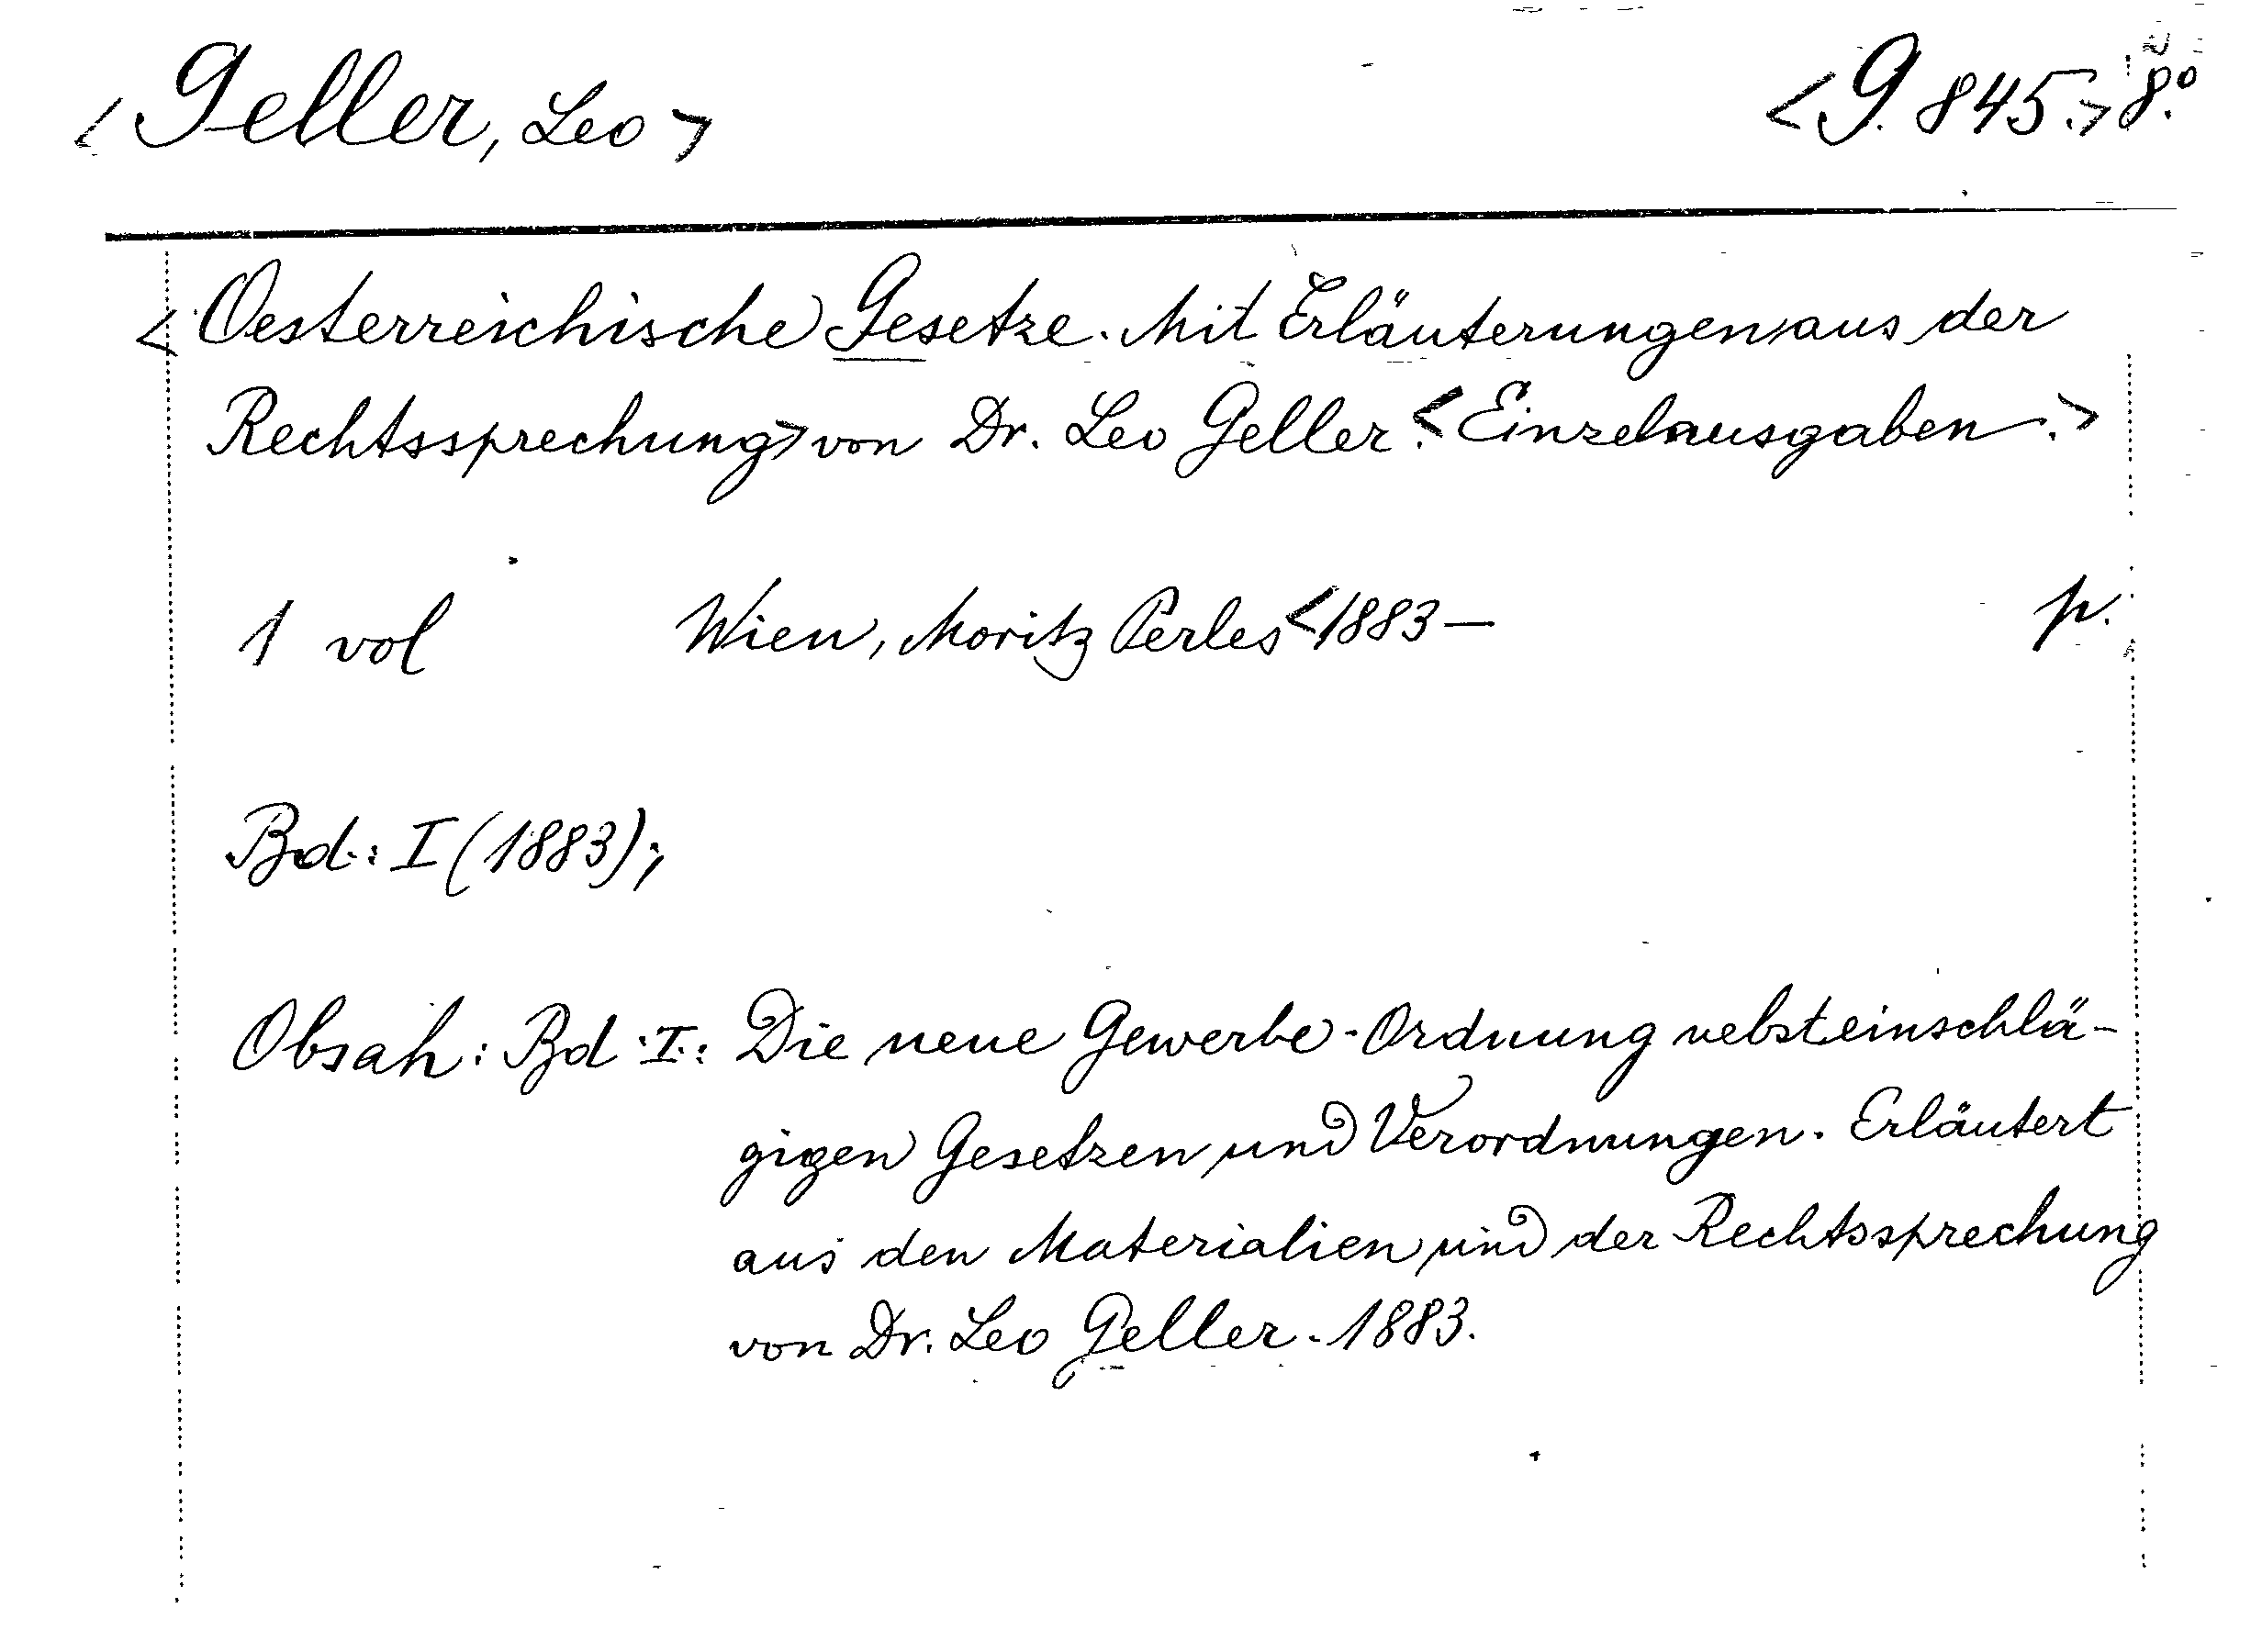 <Geller, Leo> <G. 845.> 8.°
<Oesterreichische Gesetze. Mit Erläuterungen aus der
Rechtssprechung> von Dr. Leo Geller. <Einzelausgaben.>
1 vol Wien, Moritz Perles <1883 — p.
Bd.: I (1883);
Obsah: Bd. I.: Die neue Gewerbe-Ordnung nebst einschlä-
gigen Gesetzen und Verordnungen. Erläutert
aus den Materialien und der Rechtssprechung
von Dr. Leo Geller. 1883.